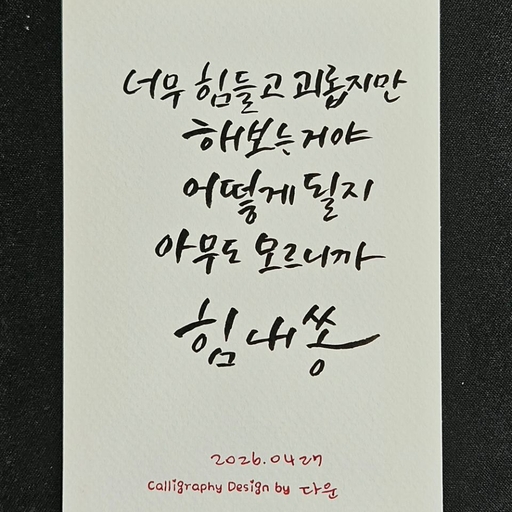 너무 힘들고 괴롭지만
해보는거야
어떻게 될지
아무도 모르니까
힘내쏭
2026.04 27
Calligraphy Design by 다운